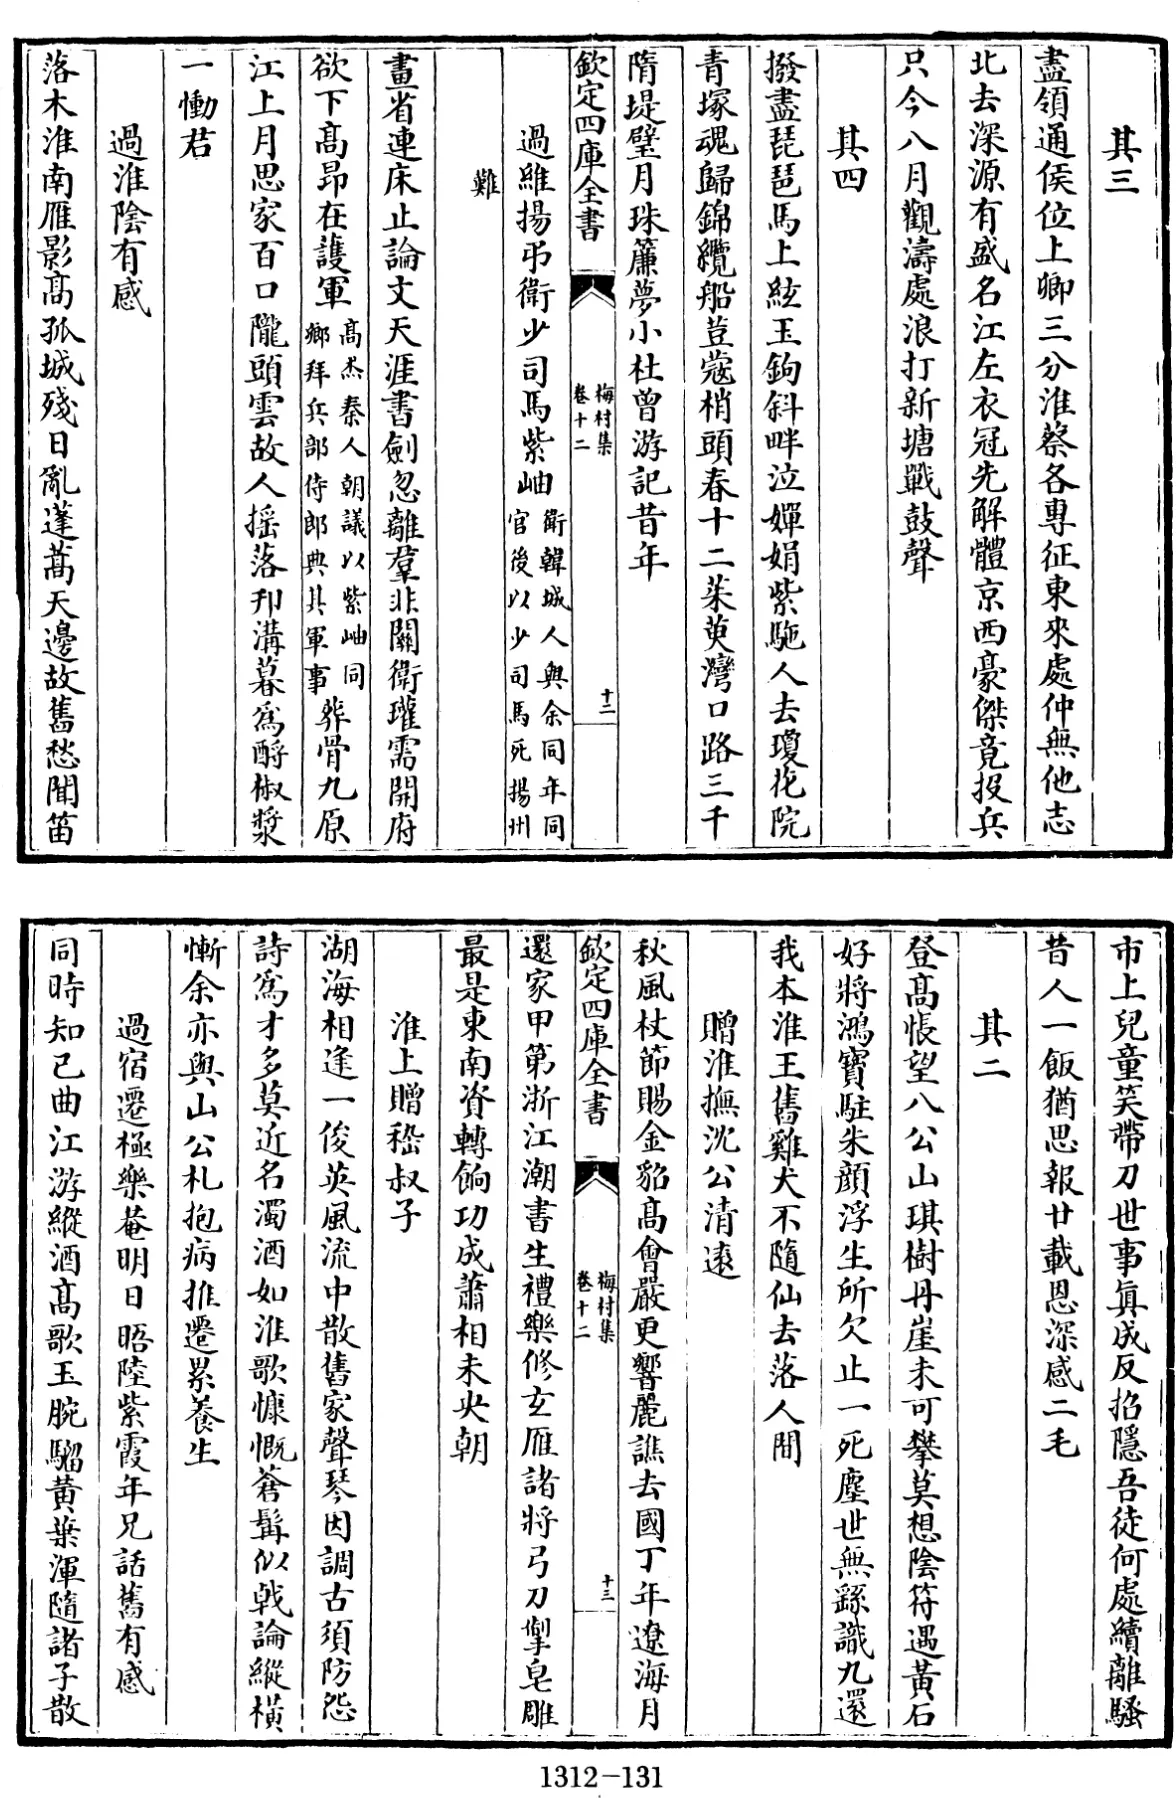 其三
盡領通侯位上卿三分淮蔡各專征東來處仲無他志
北去深源有盛名江左衣冠先解體京西豪傑竟投兵
只今八月觀濤處浪打新塘戰鼓聲
其四
撥盡琵琶馬上絃玉鉤斜畔泣嬋娟紫駞人去瓊花院
青塚魂歸錦纜船荳蔻梢頭春十二茱萸灣口路三千
隋堤璧月珠簾夢小杜曾游記昔年
欽定四庫全書
梅村集
卷十二
十二
過維揚弔衛少司馬紫岫衛韓城人與余同年同
官後以少司馬死揚州
難
畫省連床止論文天涯書劍忽離羣非關衛瓘需開府
欲下高昂在護軍高杰秦人朝議以紫岫同
鄉拜兵部侍郎典其軍事葬骨九原
江上月思家百口隴頭雲故人搖落邗溝暮為酹椒漿
一慟君
過淮陰有感
落木淮南雁影高孤城殘日亂蓬蒿天邊故舊愁聞笛
市上兒童笑帶刀世事真成反招隱吾徒何處續離騷
昔人一飯猶思報廿載恩深感二毛
其二
登高悵望八公山琪樹丹崖未可攀莫想陰符遇黃石
好將鴻寶駐朱顏浮生所欠止一死塵世無繇識九還
我本淮王舊雞犬不隨仙去落人間
贈淮撫沈公清遠
秋風杖節賜金貂高會嚴更響麗譙去國丁年遼海月
欽定四庫全書
梅村集
卷十二
十三
還家甲第浙江潮書生禮樂修玄雁諸將弓刀掣皂雕
最是東南資轉餉功成蕭相未央朝
淮上贈嵇叔子
湖海相逢一俊英風流中散舊家聲琴因調古須防怨
詩為才多莫近名濁酒如淮歌慷慨蒼髯似戟論縱橫
慚余亦與山公札抱病推遷累養生
過宿遷極樂菴明日晤陸紫霞年兄話舊有感
同時知己曲江游縱酒高歌玉腕騮黃葉渾隨諸子散
1312-131